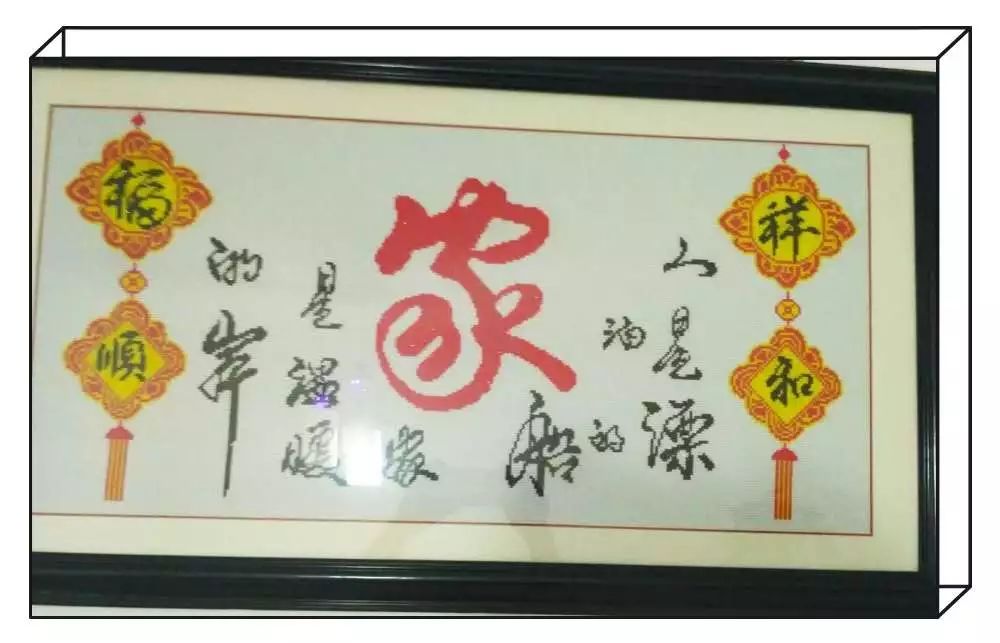 祥
和
人是漂
泊的
船
家
家
是温暖
的岸
福
順